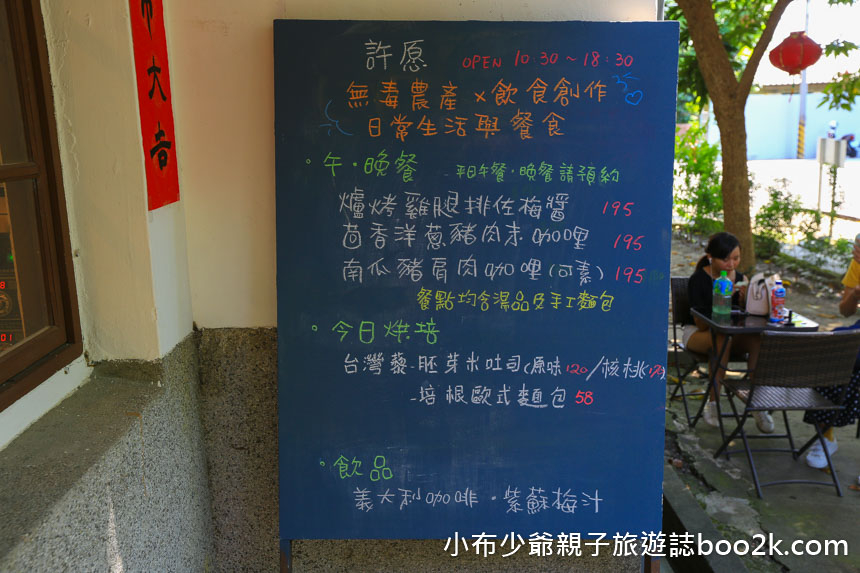 市大吉
許愿 OPEN 10:30~18:30
無毒農產×飲食創作
日常生活與餐食
·午·晚餐 -平日午餐·晚餐請預約
爐烤雞腿排佐梅醬 195
茴香洋蔥豬肉末咖哩 195
南瓜豬肩肉咖哩(可素) 195
餐點均含湯品及手工麵包
·今日烘培
台灣藜-胚芽米吐司(原味120/核桃
-培根歐式麵包 58
·飲品
義大利咖啡·紫蘇梅汁
小布少爺親子旅遊誌boo2k.com